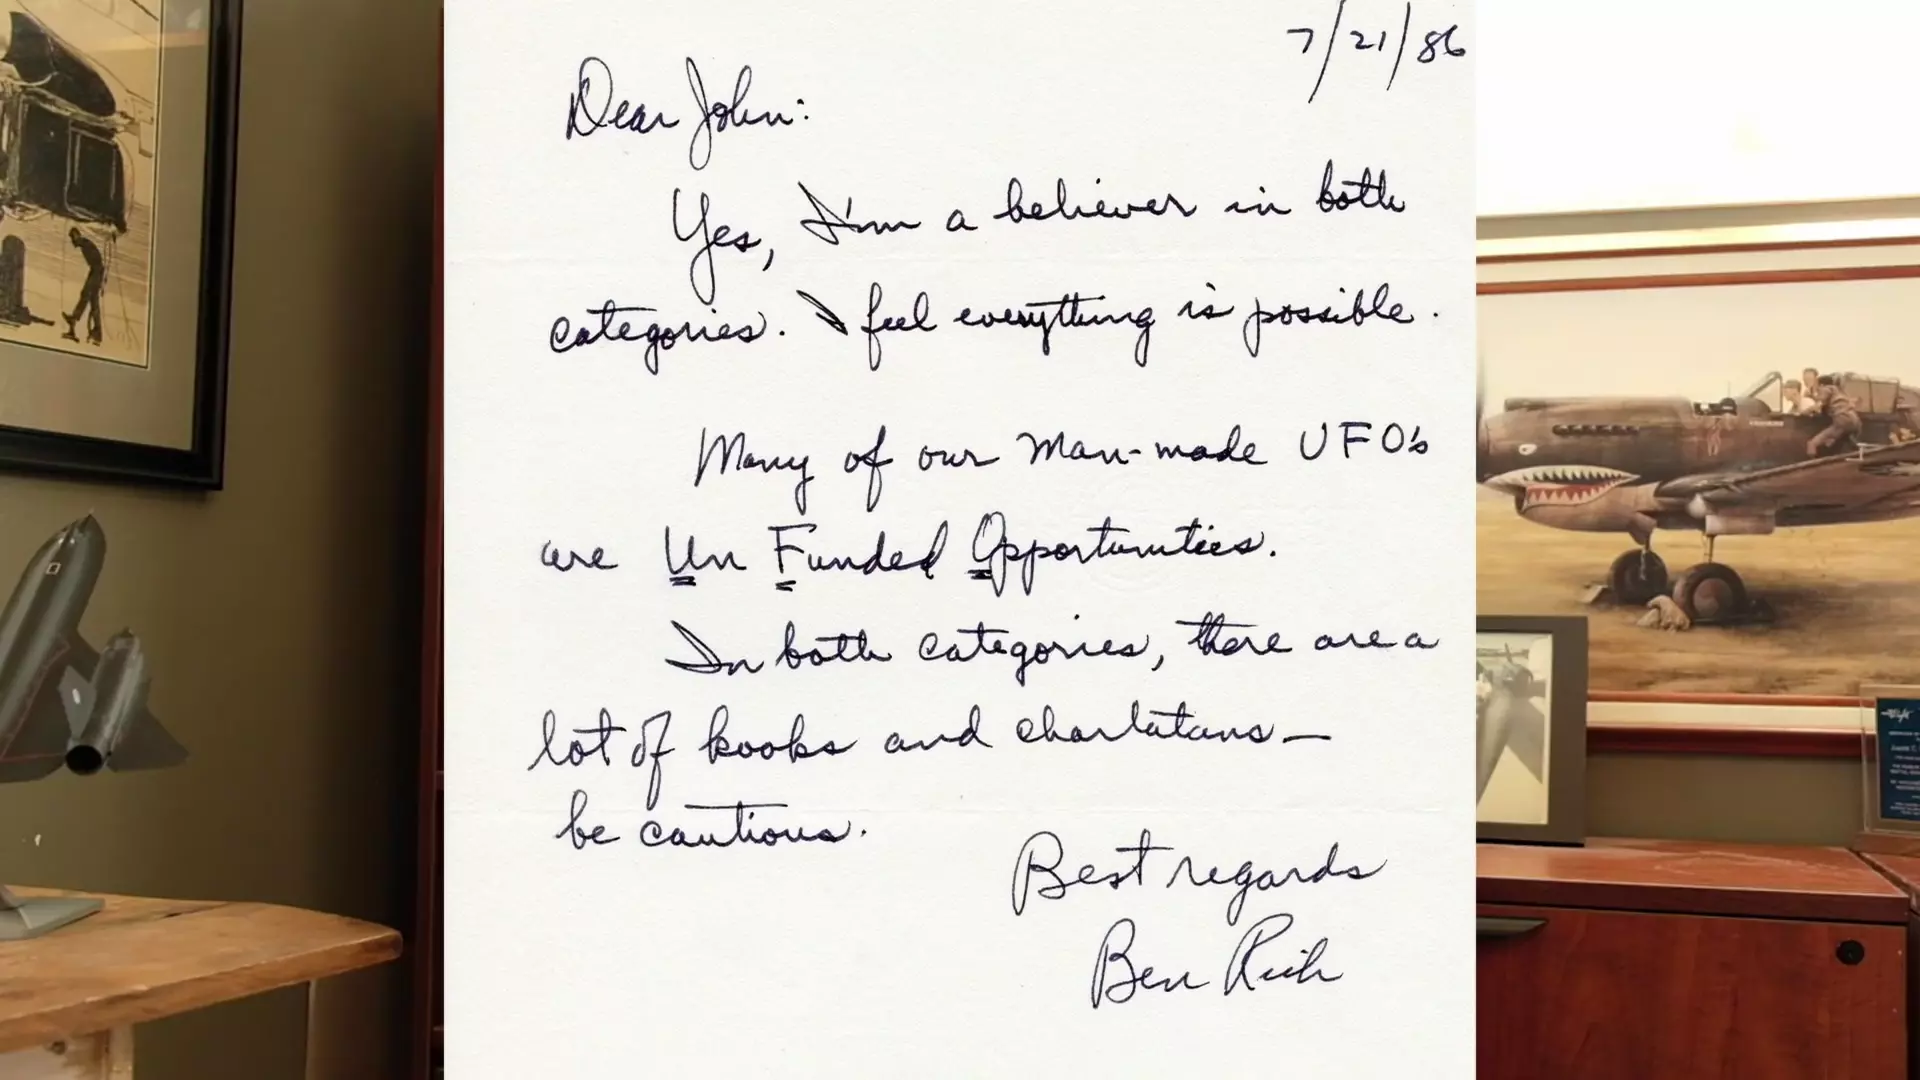 7/21/86
Dear John:
Yes, I'm a believer in both
categories. I feel everything is possible.
Many of our man-made UFO's
are Un Funded Opportunities.
In both categories, there are a
lot of kooks and charlatans—
be cautious.
Best regards
Ben Rich